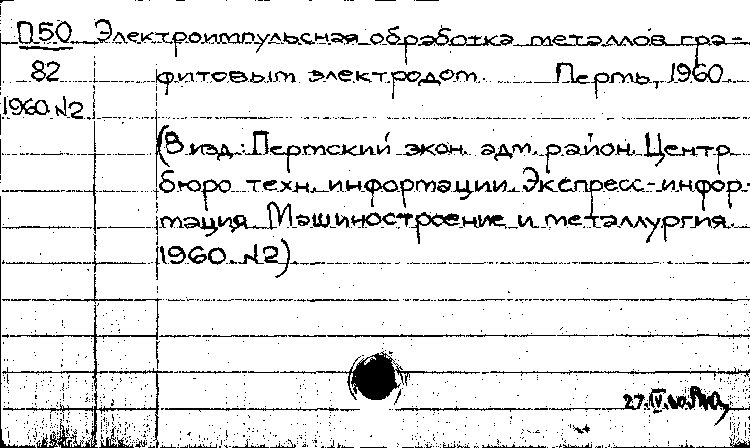 П50 Электроимпульсная обработка металлов гра-
82 фитовым электродом. Пермь, 1960.
1960.№2
(В изд.: Пермский экон. адм. район. Центр.
бюро техн. информации. Экспресс-инфор-
мация. Машиностроение и металлургия.
1960. №2).
27.IV.60.